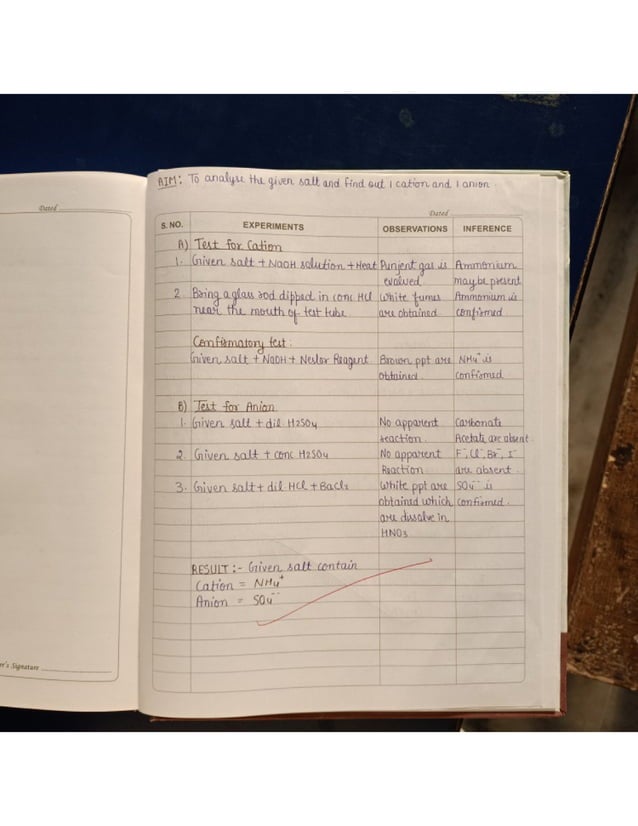 AIM: To analyse the given salt and find out 1 cation and 1 anion.
Dated
Dated
S. NO. EXPERIMENTS OBSERVATIONS INFERENCE
A) Test for Cation
1. Given salt + NaOH solution + Heat Punjent gas is Ammonium
evalved. may be present
2. Bring a glass rod dipped in conc HCl White fumes Ammonium is
near the mouth of test tube. are obtained confirmed.
Confirmatory test:
Given salt + NaOH + Neslor Reagent Brown ppt are NH4+ is
obtained. confirmed
B) Test for Anion
1. Given salt + dil. H2SO4 No apparent Carbonate
reaction. Acetate are absent.
2. Given salt + conc H2SO4 No apparent F-, Cl-, Br-, I-
Reaction. are absent.
3. Given salt + dil HCl + BaCl2 White ppt are SO4-- is
obtained which confirmed.
are dissolve in
HNO3
RESULT :- Given salt contain
Cation = NH4+
Anion = SO4--
er's Signature